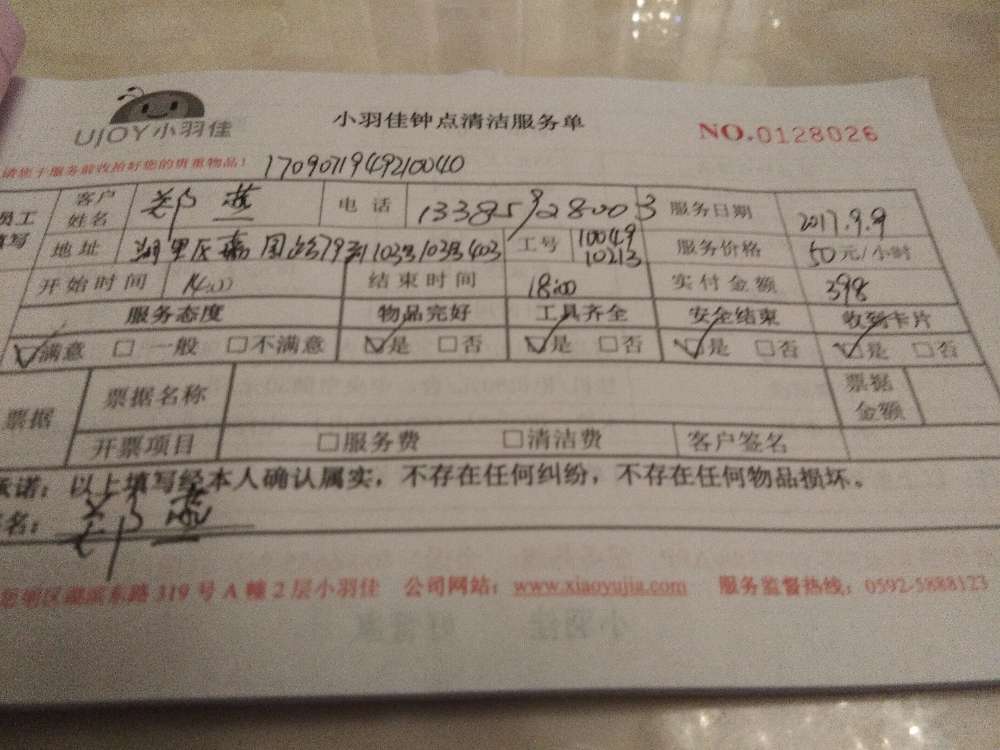 UJOY小羽佳
小羽佳钟点清洁服务单
NO.0128026
请您于服务前收拾好您的贵重物品!
1709071949210040
员工填写
客户姓名 郑燕 电话 13385928003 服务日期 2017.9.9
地址 湖里区 工号 10049 10213 服务价格 50元/小时
开始时间 14:00 结束时间 18:00 实付金额 398
服务态度 物品完好 工具齐全 安全结束 收到卡片
☑满意 □一般 □不满意 ☑是 □否 ☑是 □否 ☑是 □否 ☑是 □否
票据 票据名称 票据金额
开票项目 □服务费 □清洁费 客户签名
承诺：以上填写经本人确认属实，不存在任何纠纷，不存在任何物品损坏。
名：郑燕
湖滨东路319号A幢2层小羽佳 公司网站：www.xiaoyujia.com 服务监督热线：0592-5888123